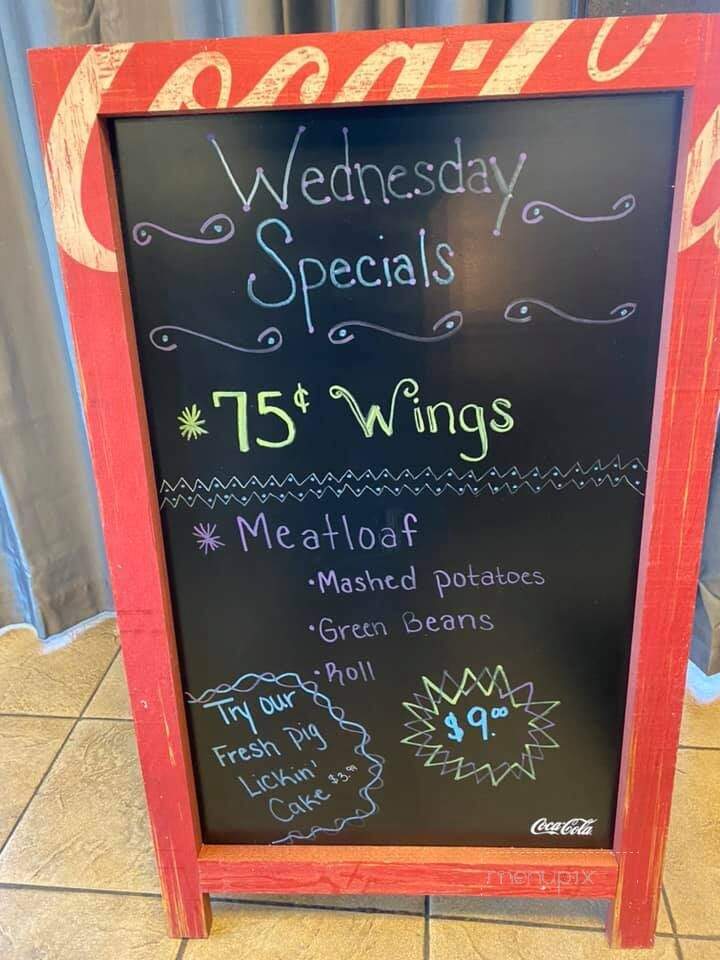 Coca-Co
Wednesday
Specials
*75¢ Wings
*Meatloaf
·Mashed potatoes
·Green Beans
·Roll
Try our
Fresh pig
Lickin'
Cake $3.99
$9.00
Coca-Cola
menupix